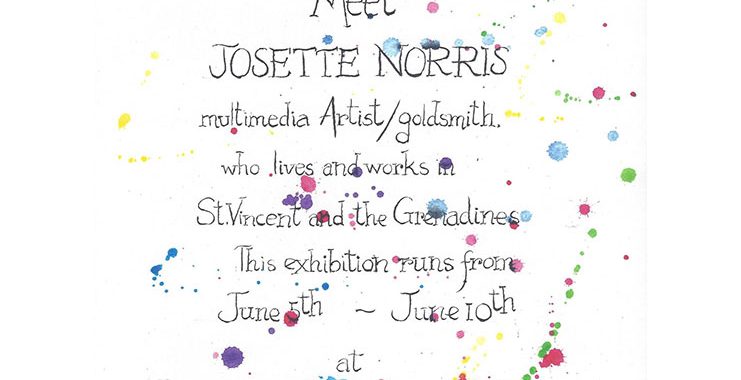 Meet
JOSETTE NORRIS
multimedia Artist/goldsmith.
who lives and works in
St.Vincent and the Grenadines
This exhibition runs from
June 5th ~ June 10th
at